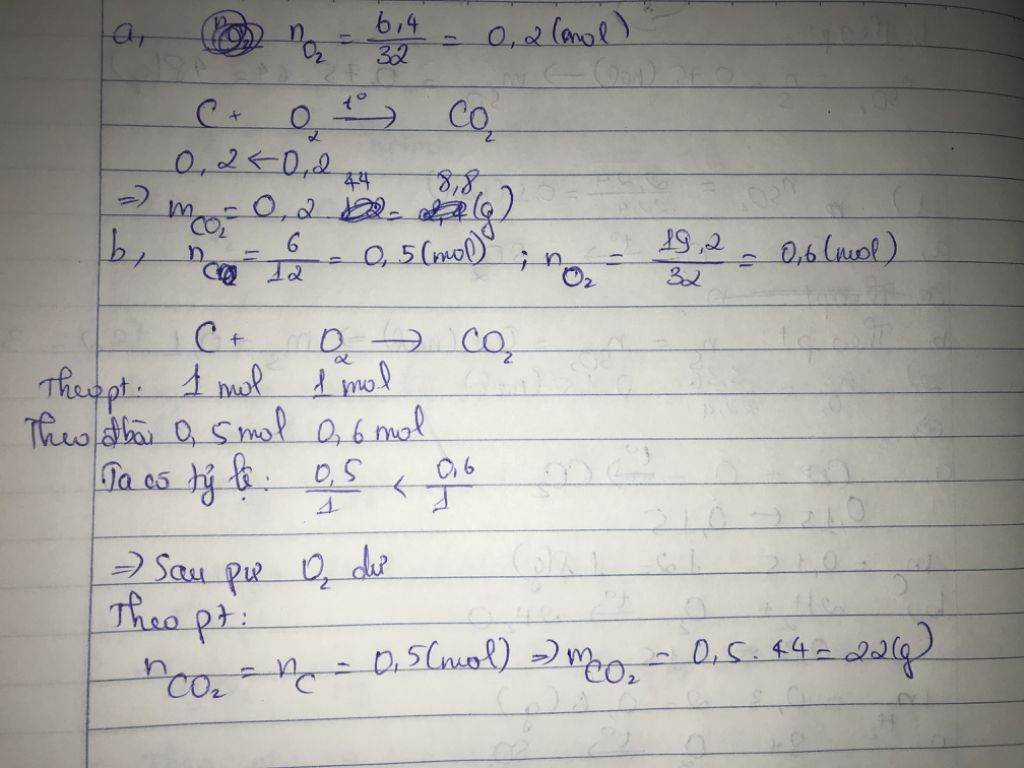 a, n O₂ = 6,4/32 = 0,2 (mol)
C + O₂ t° → CO₂
0,2 ← 0,2
⇒ m CO₂ = 0,2 . 44 = 8,8 (g)
b, n C = 6/12 = 0,5 (mol) ; n O₂ = 19,2/32 = 0,6 (mol)
C + O₂ → CO₂
Theo pt: 1 mol 1 mol
Theo đbài 0,5 mol 0,6 mol
Ta có tỷ lệ: 0,5/1 < 0,6/1
⇒ Sau pư O₂ dư
Theo pt:
n CO₂ = n C = 0,5 (mol) ⇒ m CO₂ = 0,5 . 44 = 22 (g)